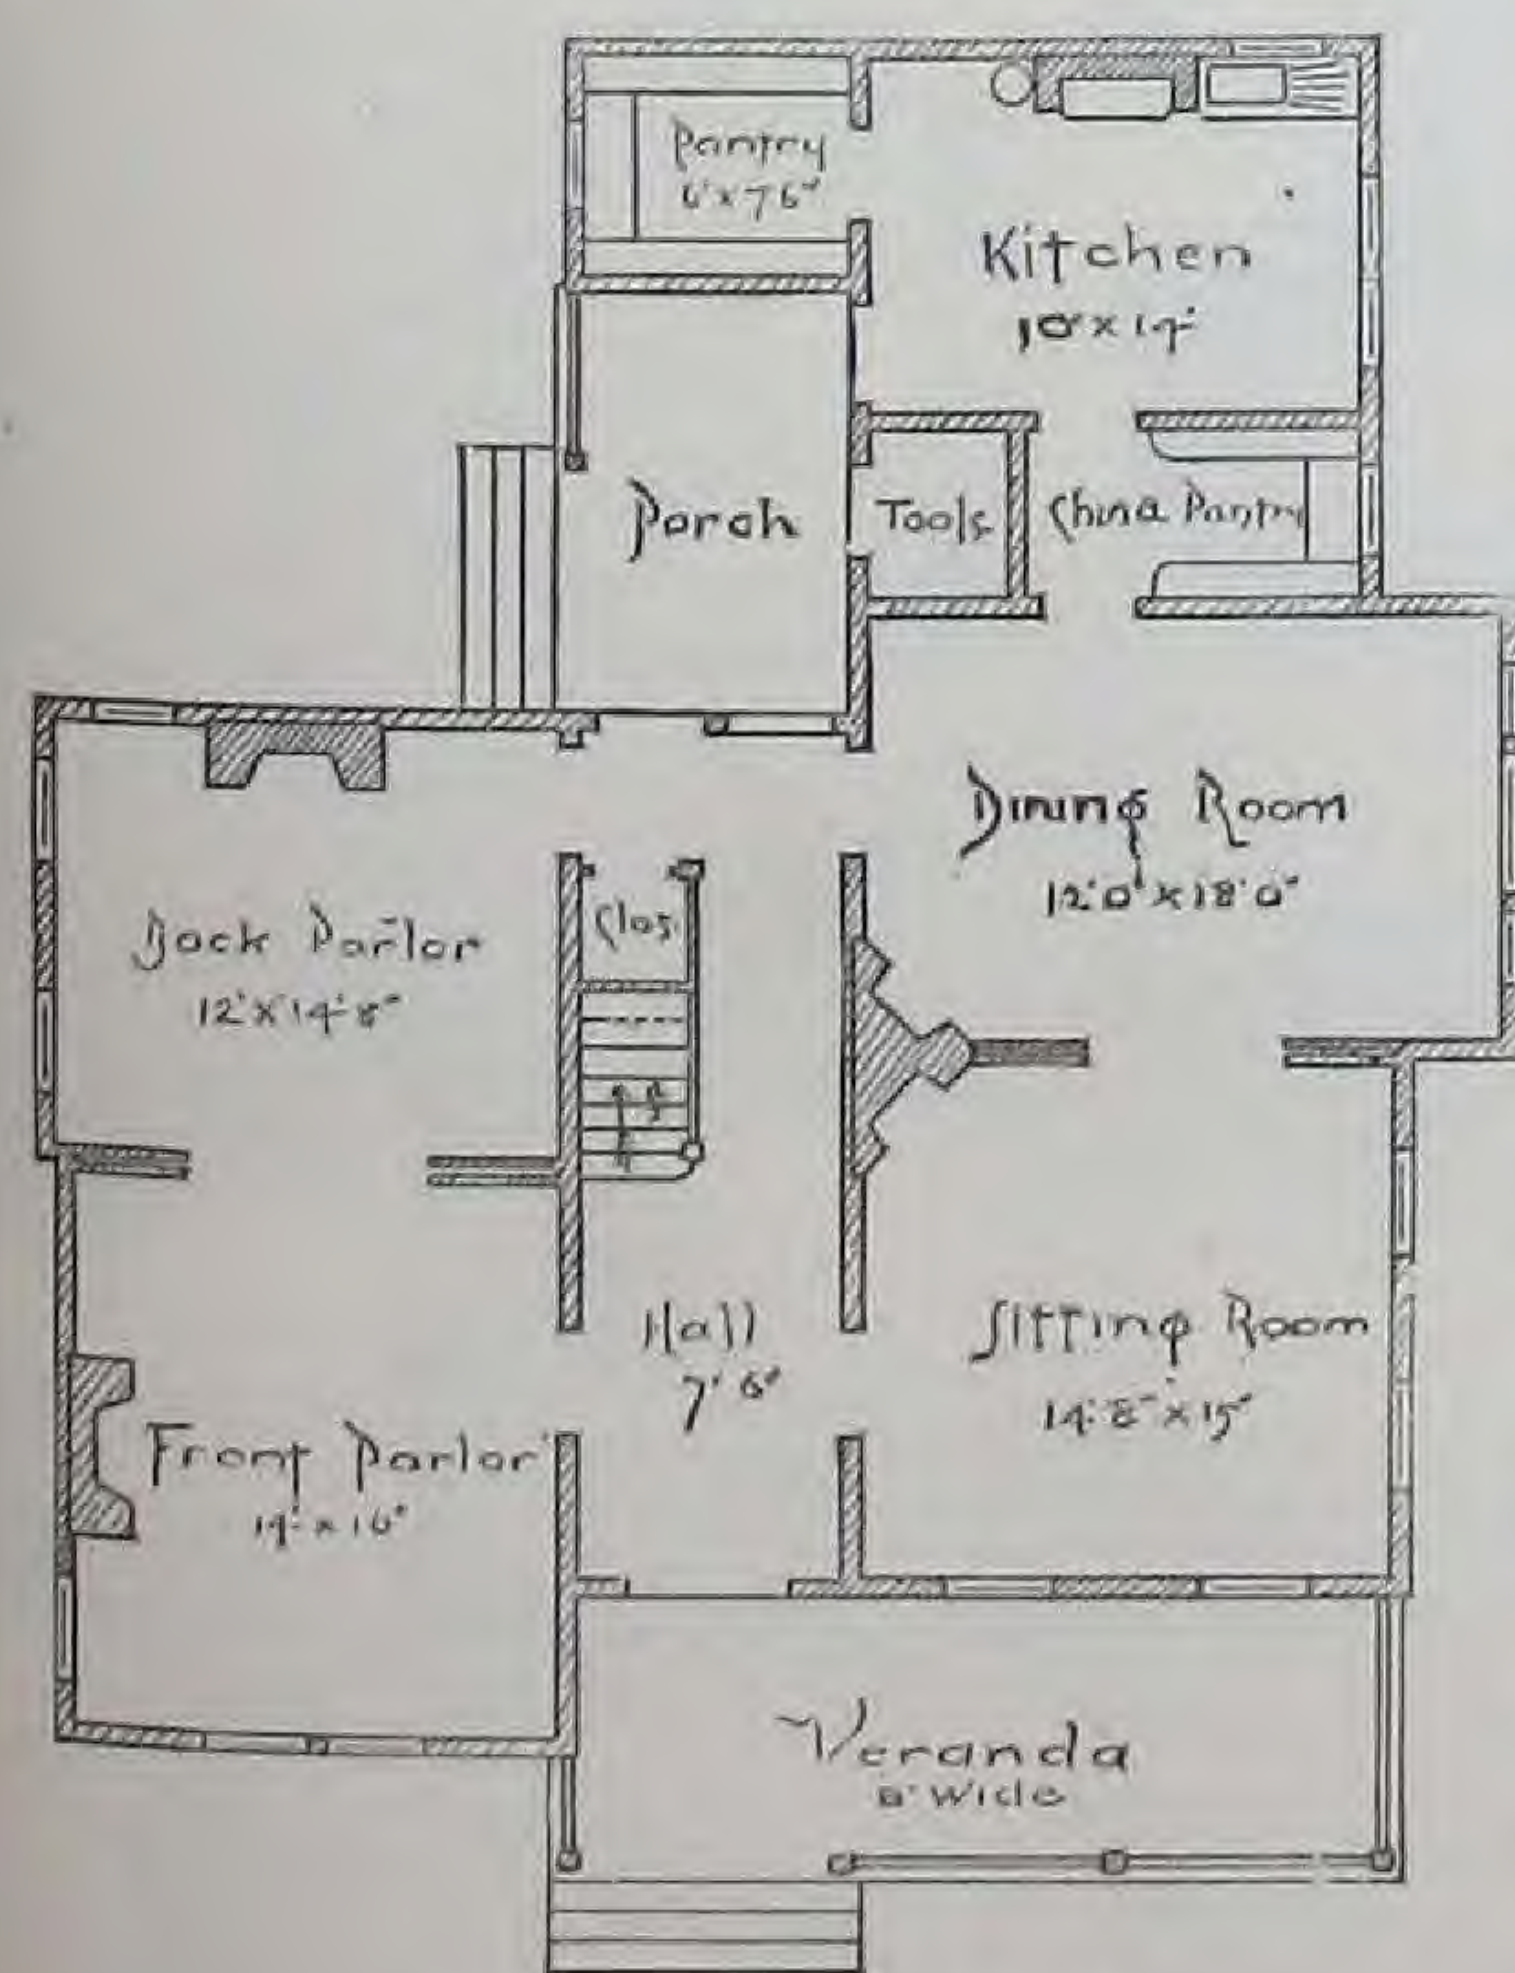 Pantry
6' x 7'6"
Kitchen
10' x 14'
Porch
Tools
China Pantry
Dining Room
12'0" x 18'0"
Clos.
Back Parlor
12' x 14'-8"
Up
Hall
7'6"
Sitting Room
14'-8" x 15'
Front Parlor
14' x 16'
Veranda
8' Wide